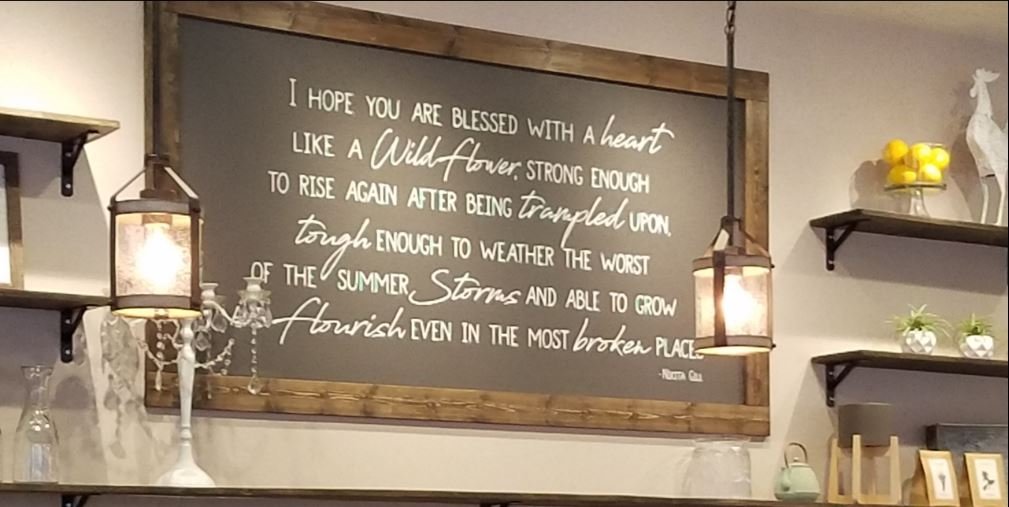 I HOPE YOU ARE BLESSED WITH A heart
LIKE A Wildflower, STRONG ENOUGH
TO RISE AGAIN AFTER BEING trampled UPON,
tough ENOUGH TO WEATHER THE WORST
OF THE SUMMER Storms AND ABLE TO GROW
flourish EVEN IN THE MOST broken PLACES
-NIKITA GILL